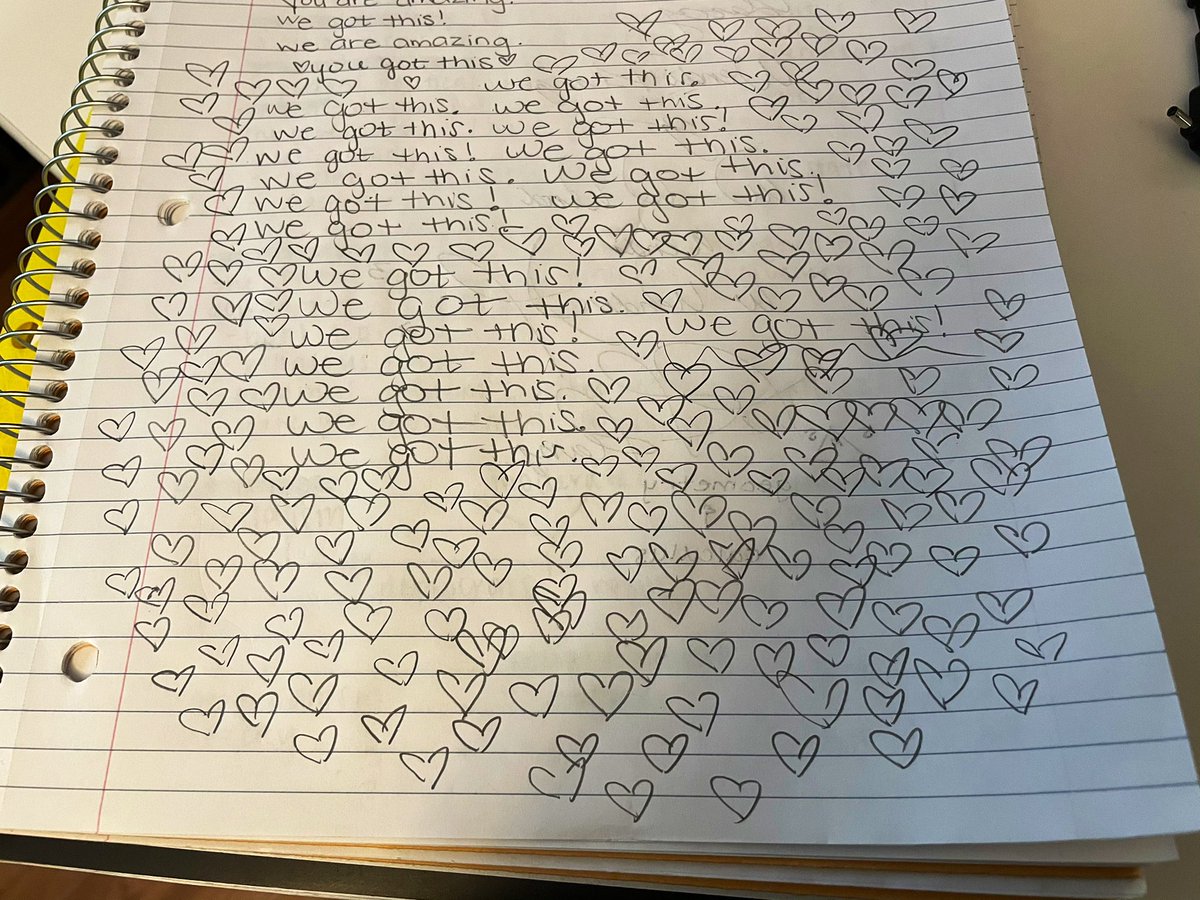 you are amazing.
we got this!
we are amazing.
♡you got this♡
we got this.
we got this. we got this.
we got this. we got this!
we got this! we got this.
we got this. we got this.
we got this! we got this!
we got this!
we got this!
we got this.
we got this! we got this!
we got this.
we got this.
we got this.
we got this.